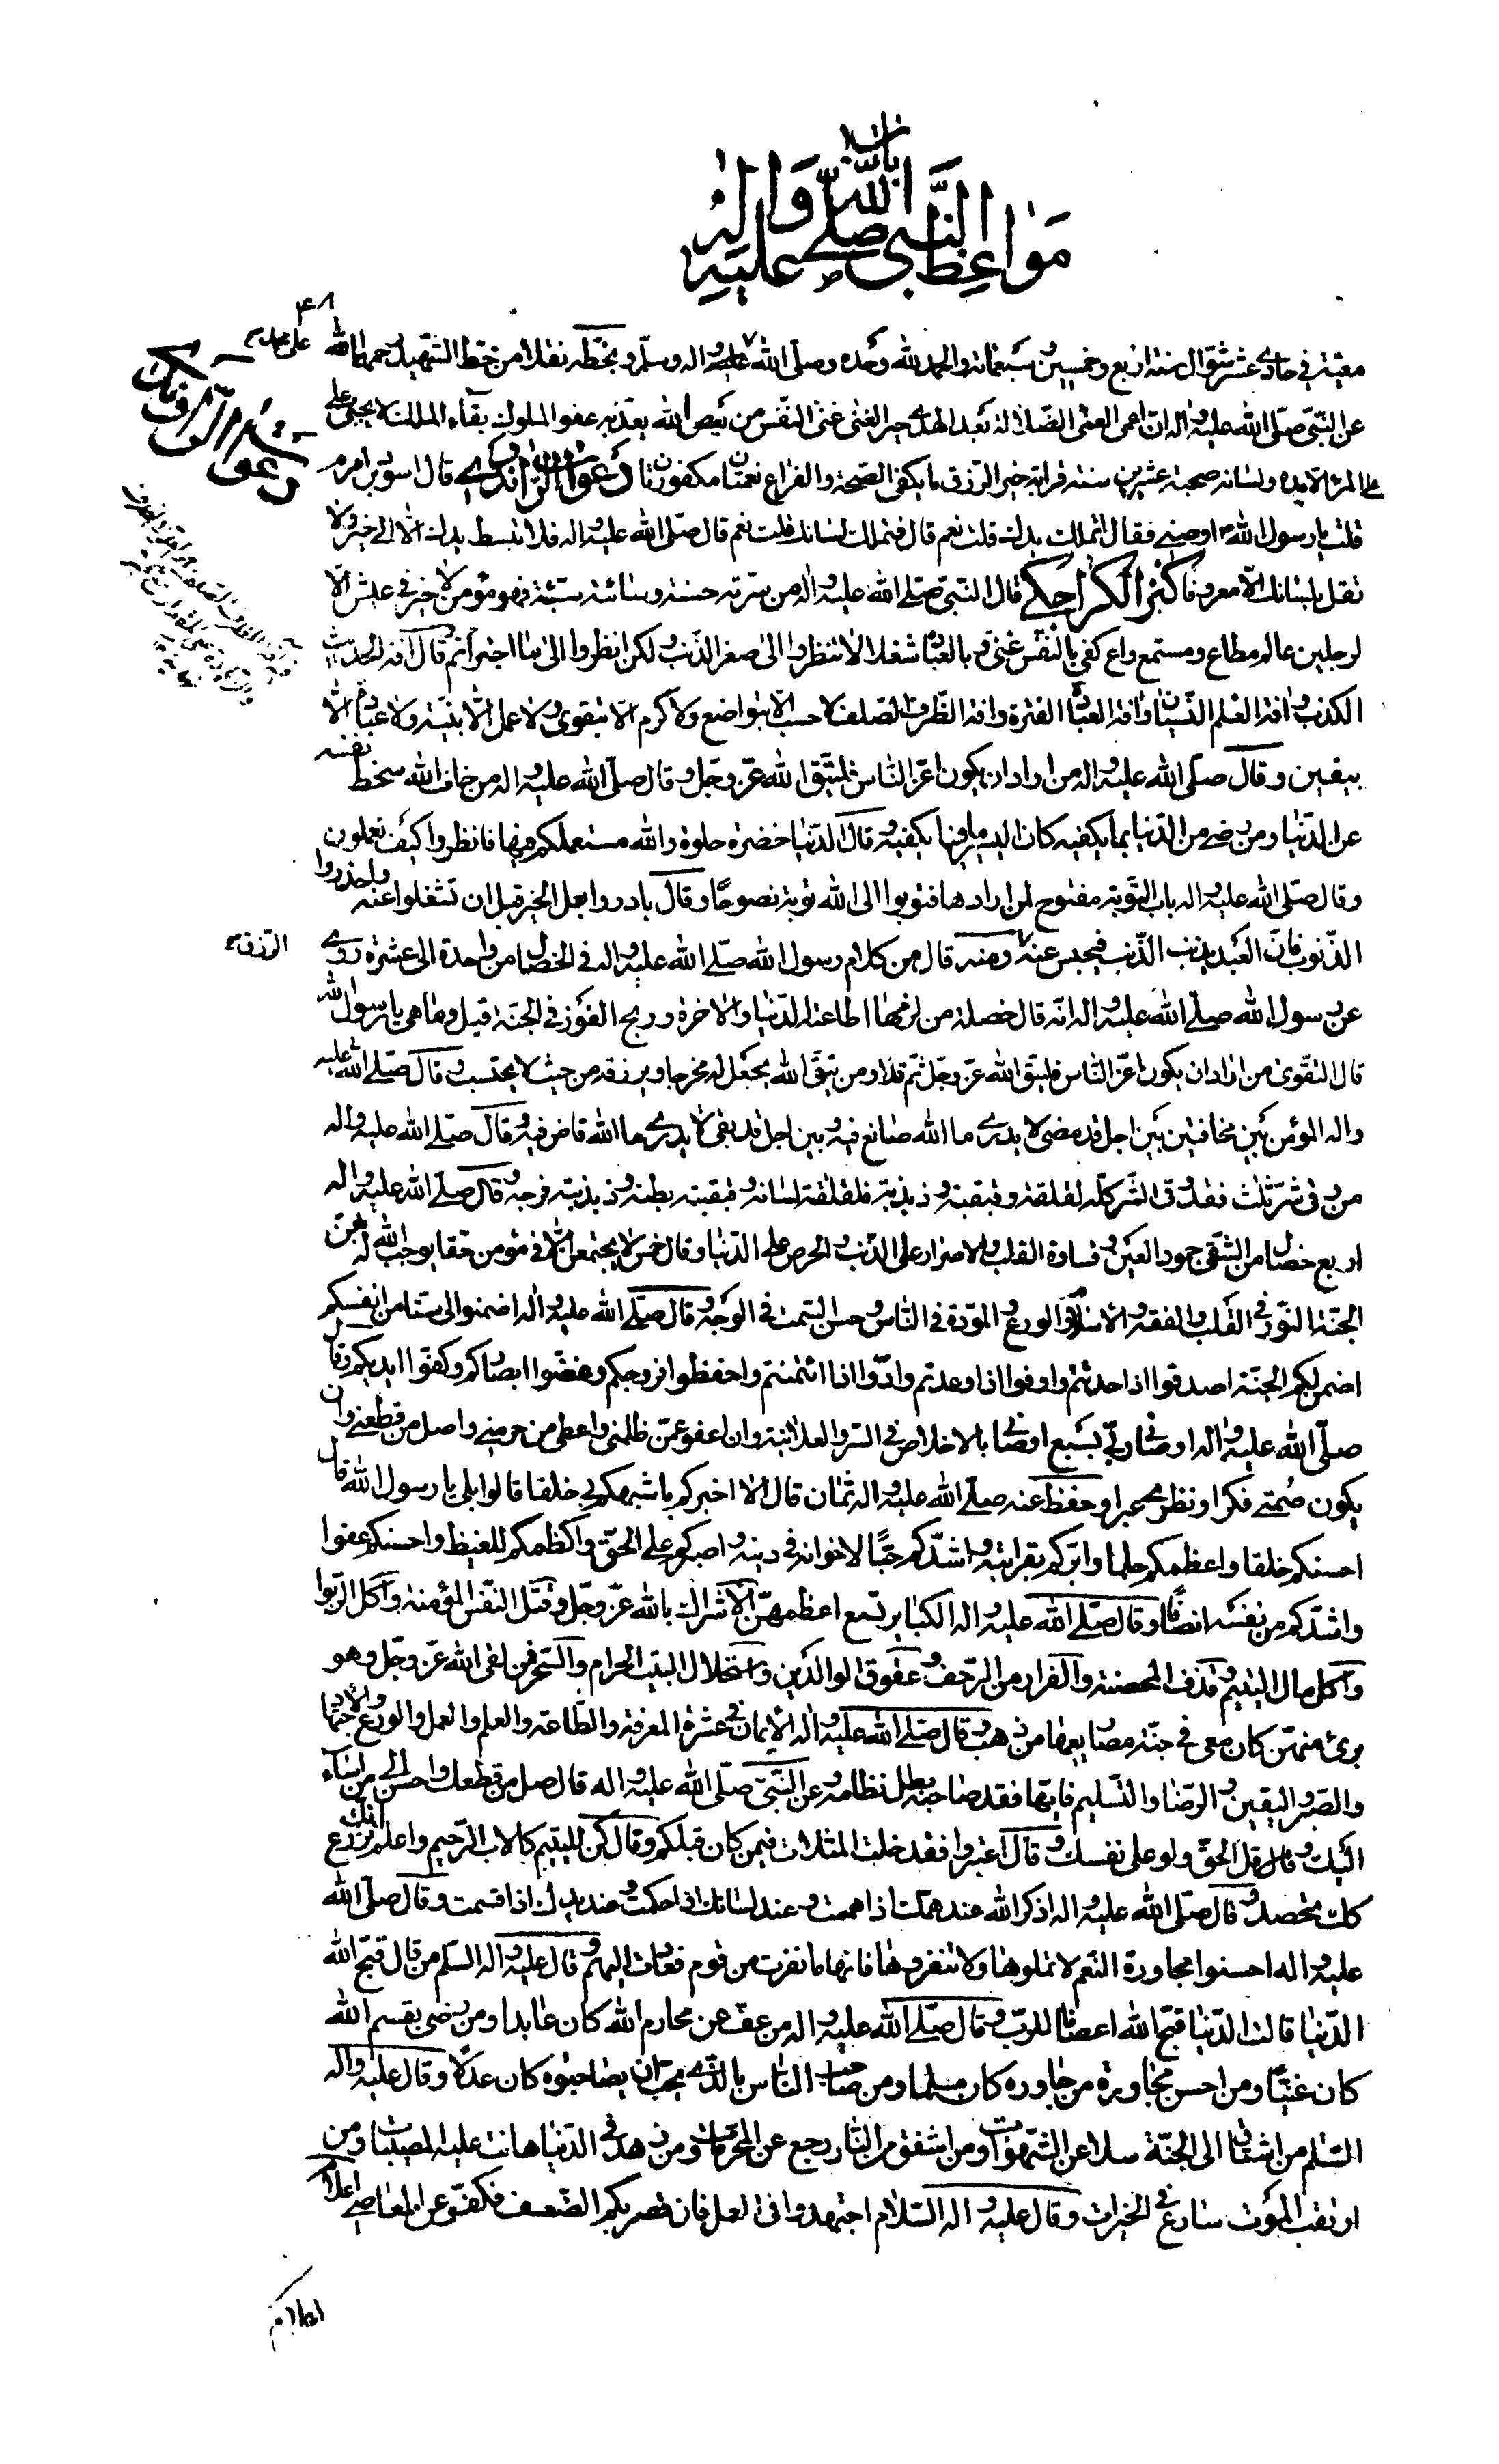 باب
مواعظ النبي صلى الله عليه واله
۴۸
معية في حادي عشر شوال سنة اربع وخمسين سبعمائة والحمد لله وحده وصلى الله عليه واله وسلم وبخطه نقلا من خط الشهيد رحمهما الله
عن النبي صلى الله عليه واله ان اعمى العمى الضلالة بعد الهدى خير الغنى غنى النفس من يعص الله يعذبه عفو الملوك بقاء الملك لا يجني على
على المرء الا يده ولسانه صحبة عشرين سنة قرابة خير الرزق ما يكفي الصحة والفراغ نعمتان مكفورتان دعوات الراوندي قال اسود بن اصرم
قلت يا رسول الله اوصني فقال اتملك يدك قلت نعم قال فتملك لسانك قلت نعم قال صلى الله عليه واله فلا تبسط يدك الا الى خير ولا
تقل بلسانك الا معروفا كنز الكراجكي قال النبي صلى الله عليه واله من سرته حسنة وسائته سيئة فهو مؤمن لا خير في عيش الا
لرجلين عالم مطاع ومستمع واع كفى بالنفس غنى و بالعبادة شغلا لا تنظروا الى صغر الذنب ولكن انظروا الى من اجترأتم وقال افة الحديث
الكذب وافة العلم النسيان وافة العبادة الفترة وافة الظرف الصلف لا حسب الا بتواضع ولا كرم الا بتقوى ولا عمل الا بنية ولا عبادة الا
بيقين وقال صلى الله عليه واله من اراد ان يكون اعز الناس فليتق الله عز وجل وقال صلى الله عليه واله من خاف الله سخط نفسه
عن الدنيا ومن رضي من الدنيا بما يكفيه كان ايسر ما فيها يكفيه وقال الدنيا خضرة حلوة والله مستعملكم فيها فانظروا كيف تعملون
وقال صلى الله عليه واله باب التوبة مفتوح لمن ارادها فتوبوا الى الله توبة نصوحا وقال بادروا بعمل الخير قبل ان تشغلوا عنه واحذروا
الذنوب فان العبد يذنب الذنب فيحبس عنه ومنه قال من كلام رسول الله صلى الله عليه واله في الخصال من واحدة الى عشرة روي
الرزق
عن رسول الله صلى الله عليه واله انه قال خصلة من لزمها اطاعته الدنيا والاخرة وربح الفوز في الجنة قيل وما هي يا رسول الله
قال التقوى من اراد ان يكون اعز الناس فليتق الله عز وجل ثم تلا ومن يتق الله يجعل له مخرجا ويرزقه من حيث لا يحتسب وقال صلى الله عليه
واله المؤمن بين مخافتين بين اجل قد مضى لا يدري ما الله صانع فيه وبين اجل قد بقي لا يدري ما الله قاض فيه وقال صلى الله عليه واله
من وقى شر ثلث فقد وقى الشر كله لقلقه وقبقبه وذبذبه فلقلقة لسانه وقبقبته بطنه وذبذبته فرجه وقال صلى الله عليه واله
اربع خصال من الشقى جمود العين وقساوة القلب والاصرار على الذنب والحرص على الدنيا وقال خمس لا يجتمعن الا في مؤمن حقا يوجب الله له بهن
الجنة النور في القلب والفقه في الاسلام والورع والمودة في الناس وحسن السمت في الوجه وقال صلى الله عليه واله اضمنوا لي ستا من انفسكم
اضمن لكم الجنة اصدقوا اذا حدثتم واوفوا اذا وعدتم وادوا اذا ائتمنتم واحفظوا فروجكم وغضوا ابصاركم وكفوا ايديكم وقال
صلى الله عليه واله اوصاني ربي بسبع اوصاني بالاخلاص في السر والعلانية وان اعفو عمن ظلمني واعطي من حرمني واصل من قطعني وان
يكون صمتي فكرا ونظري عبرا وحفظ عنه صلى الله عليه واله ثمان قال الا اخبركم باشبهكم بي خلقا قالوا بلى يا رسول الله قال
احسنكم خلقا واعظمكم حلما وابركم بقرابته واشدكم حبا لاخوانه في دينه واصبركم على الحق واكظمكم للغيظ واحسنكم عفوا
واشدكم من نفسه انصافا وقال صلى الله عليه واله الكبائر تسع اعظمهن الاشراك بالله عز وجل وقتل النفس المؤمنة واكل الربوا
واكل مال اليتيم وقذف المحصنة والفرار من الزحف وعقوق الوالدين واستحلال البيت الحرام والسحر فمن لقى الله عز وجل وهو
برئ منهن كان معي في جنة مصاريعها من ذهب وقال صلى الله عليه واله الايمان في عشرة المعرفة والطاعة والعلم والعمل والورع والاجتهاد
والصبر واليقين والرضا والتسليم فايها فقد صاحبه بطل نظامه وعن النبي صلى الله عليه واله قال صل من قطعك واحسن الى من اساء
اليك وقال قل الحق ولو على نفسك وقال اعتبروا فقد خلت المثلات فيمن كان قبلكم وقال كن لليتيم كالاب الرحيم واعلم انك تزرع
كذلك تحصد وقال صلى الله عليه واله اذكر الله عند همك اذا هممت وعند لسانك اذا حكمت وعند يدك اذا قسمت وقال صلى الله
عليه واله احسنوا مجاورة النعم لا تملوها ولا تنفروها فانها ما نفرت من قوم فعادت اليهم وقال عليه واله السلم من قال قبح الله
الدنيا قالت الدنيا قبح الله اعصانا للرب وقال صلى الله عليه واله من عف عن محارم الله كان عابدا ومن رضى بقسم الله
كان غنيا ومن احسن مجاورة من جاوره كان مسلما ومن صاحب الناس بالذي يحب ان يصاحبوه كان عدلا وقال عليه واله
السلم من اشتاق الى الجنة سلا عن الشهوات ومن اشفق من النار رجع عن المحرمات ومن زهد في الدنيا هانت عليه المصيبات ومن
ارتقب الموت سارع في الخيرات وقال عليه واله السلام اجتهدوا في العمل فان قصر بكم الضعف فكفوا عن المعاصي اعلام